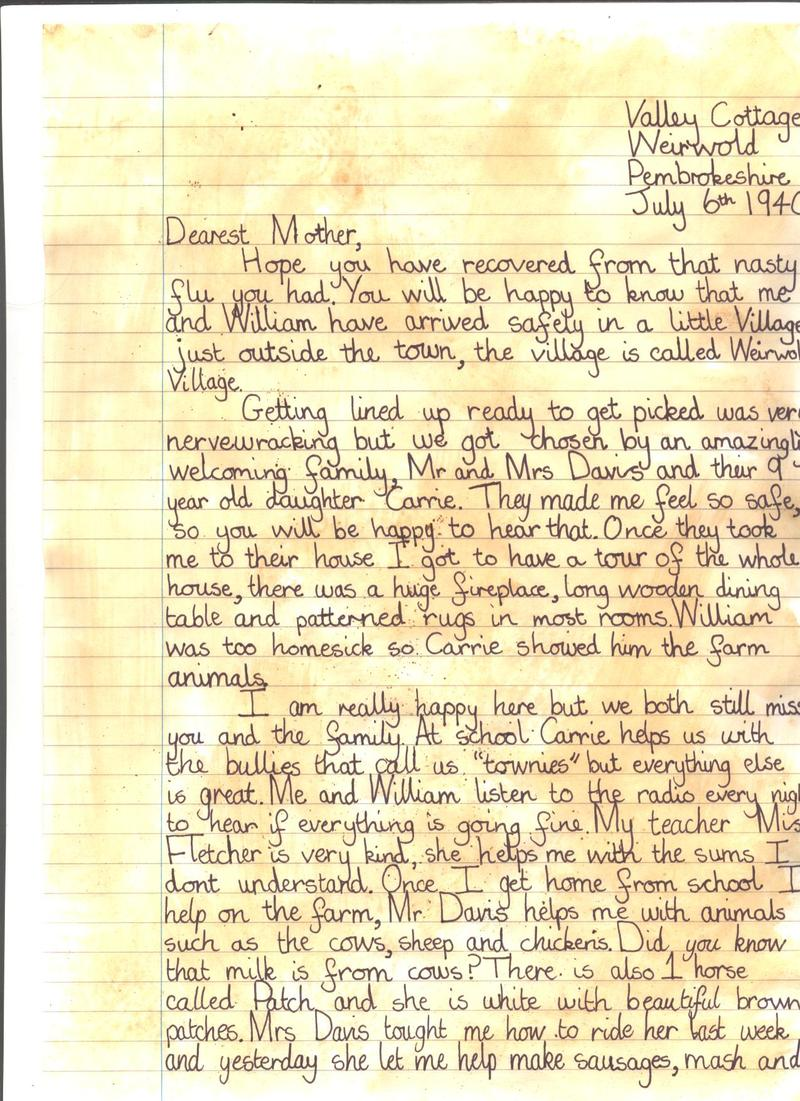 Valley Cottage
Weirwold
Pembrokeshire
July 6th 1940
Dearest Mother,
Hope you have recovered from that nasty
flu you had. You will be happy to know that me
and William have arrived safely in a little Village
just outside the town, the village is called Weirwol
Village.
Getting lined up ready to get picked was ver
nervewracking but we got chosen by an amazingl
welcoming family, Mr and Mrs Davis and their 9
year old daughter Carrie. They made me feel so safe,
so you will be happy to hear that. Once they took
me to their house I got to have a tour of the whole
house, there was a huge fireplace, long wooden dining
table and patterned rugs in most rooms. William
was too homesick so Carrie showed him the farm
animals.
I am really happy here but we both still miss
you and the family. At school Carrie helps us with
the bullies that call us "townies" but everything else
is great. Me and William listen to the radio every nigh
to hear if everything is going fine. My teacher Mis
Fletcher is very kind, she helps me with the sums I
dont understand. Once I get home from school I
help on the farm, Mr Davis helps me with animals
such as the cows, sheep and chickens. Did you know
that milk is from cows? There is also 1 horse
called Patch and she is white with beautiful brown
patches. Mrs Davis tought me how to ride her last week
and yesterday she let me help make sausages, mash and